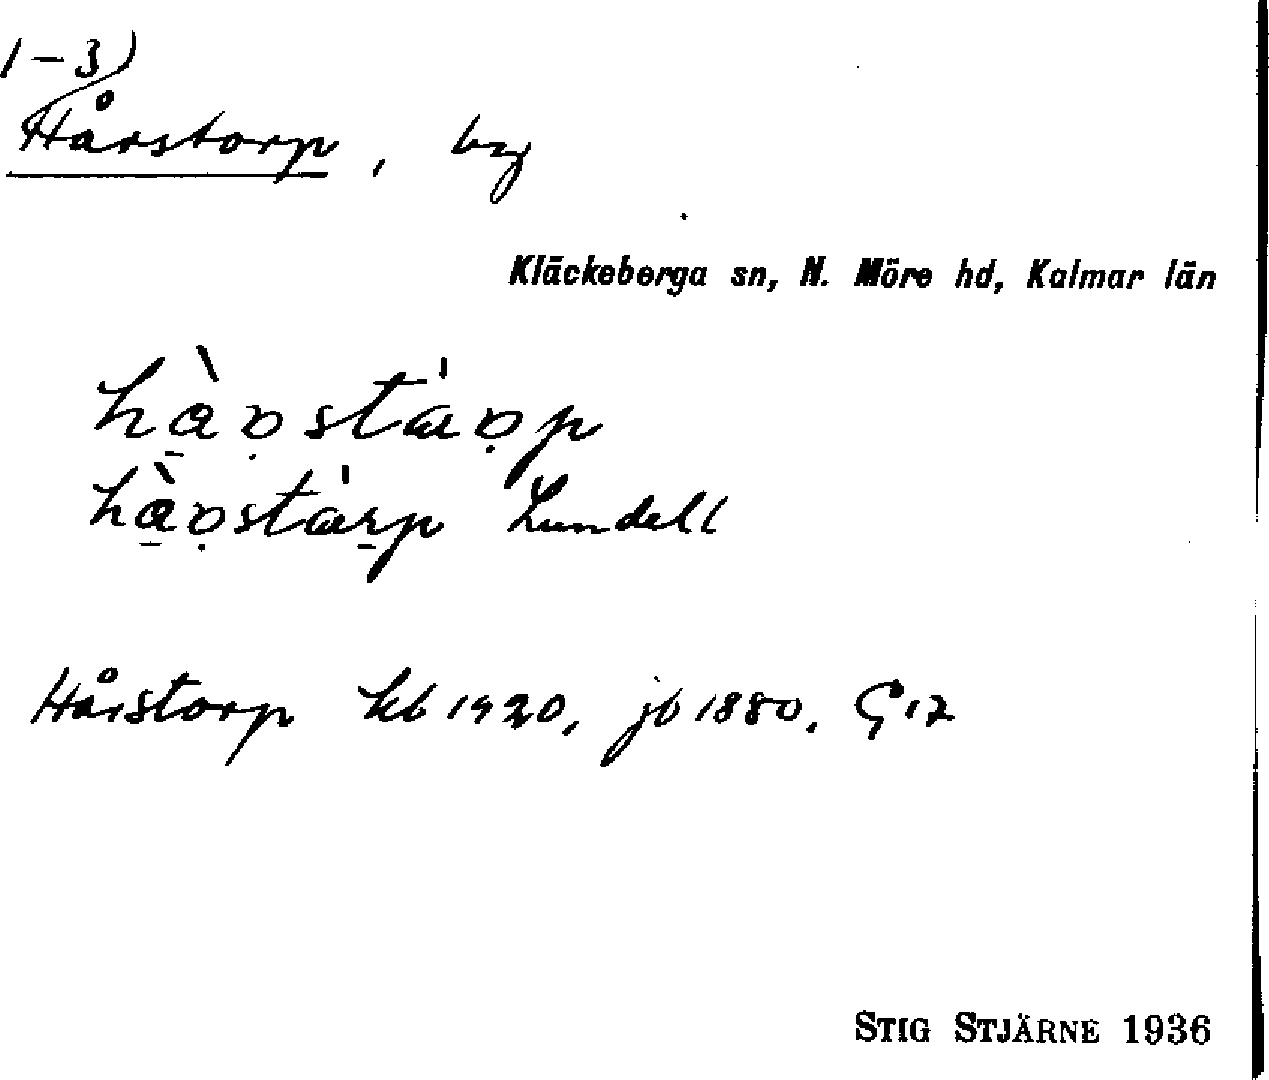 1-3)
Hårstorp, by
Kläckeberga sn, N. Möre hd, Kalmar län
Lundell
Hårstorp kb 1920, jb 1880, G 17
STIG STJÄRNE 1936